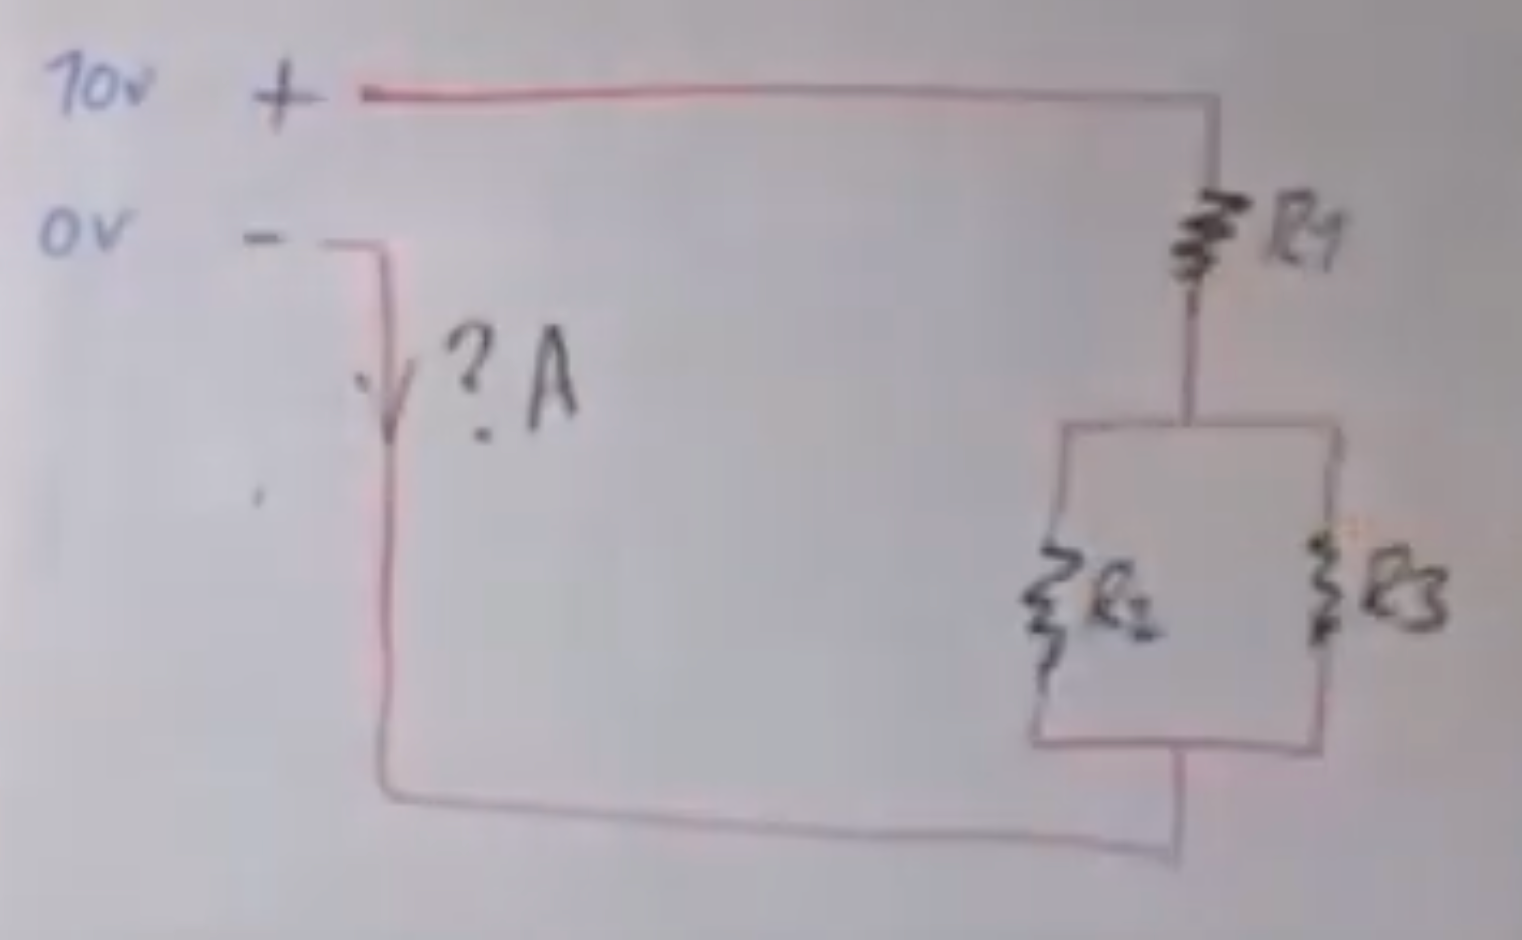 10v +
0V -
R1
? A
R2
R3